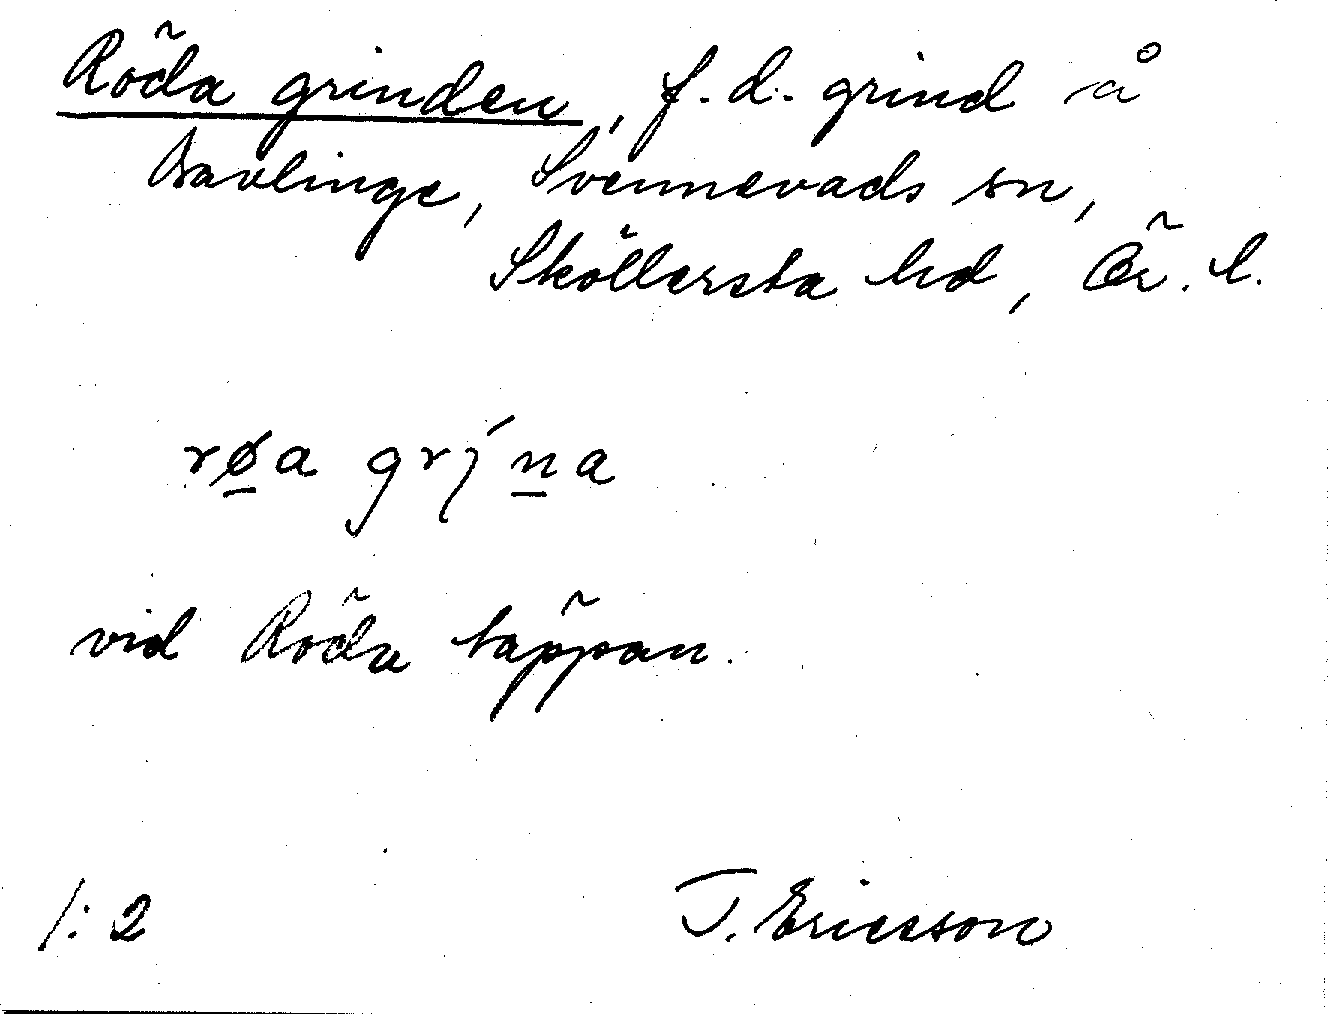 Röda grinden, f.d. grind å
Bavlinge, Svennevads sn,
Sköllersta hd, Ör. l.
røa grı́na
vid Röda täppan.
1:2
T. Ericsson